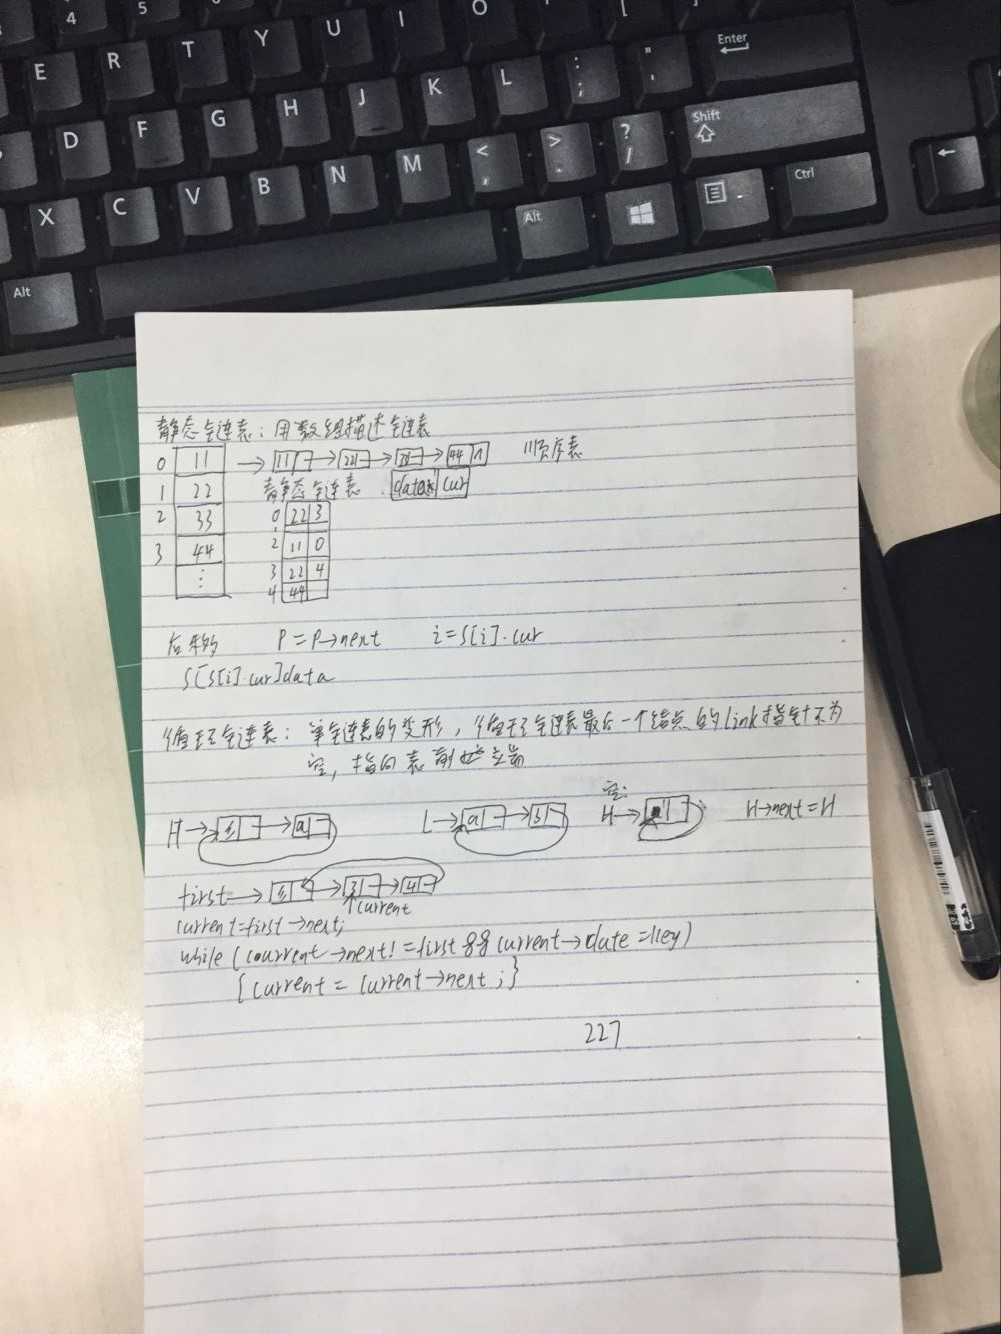 4 5
E R T Y U I O P [ ] Enter
D F G H J K L : ; " ' Shift
X C V B N M < , > . ? / Ctrl
Alt Alt
静态链表：用数组描述链表
0 11 → 11 → 22 → 33 → 44 ∧ 顺序表
1 22 静态链表 data cur
2 33 0 22 3
3 44 2 11 0
⋮ 3 22 4
4 44
后来的 P=P→next i=S[i].cur
S[S[i].cur]data
循环链表：单链表的变形，循环链表最后一个结点的link指针不为
空，指向表前端
空:
H→ a1 L→ a1 H→ H→next=H
first→ 31 41
↑current
current=first→next;
while(courrent→next!=first&&current→date=key)
{current=current→next;}
227